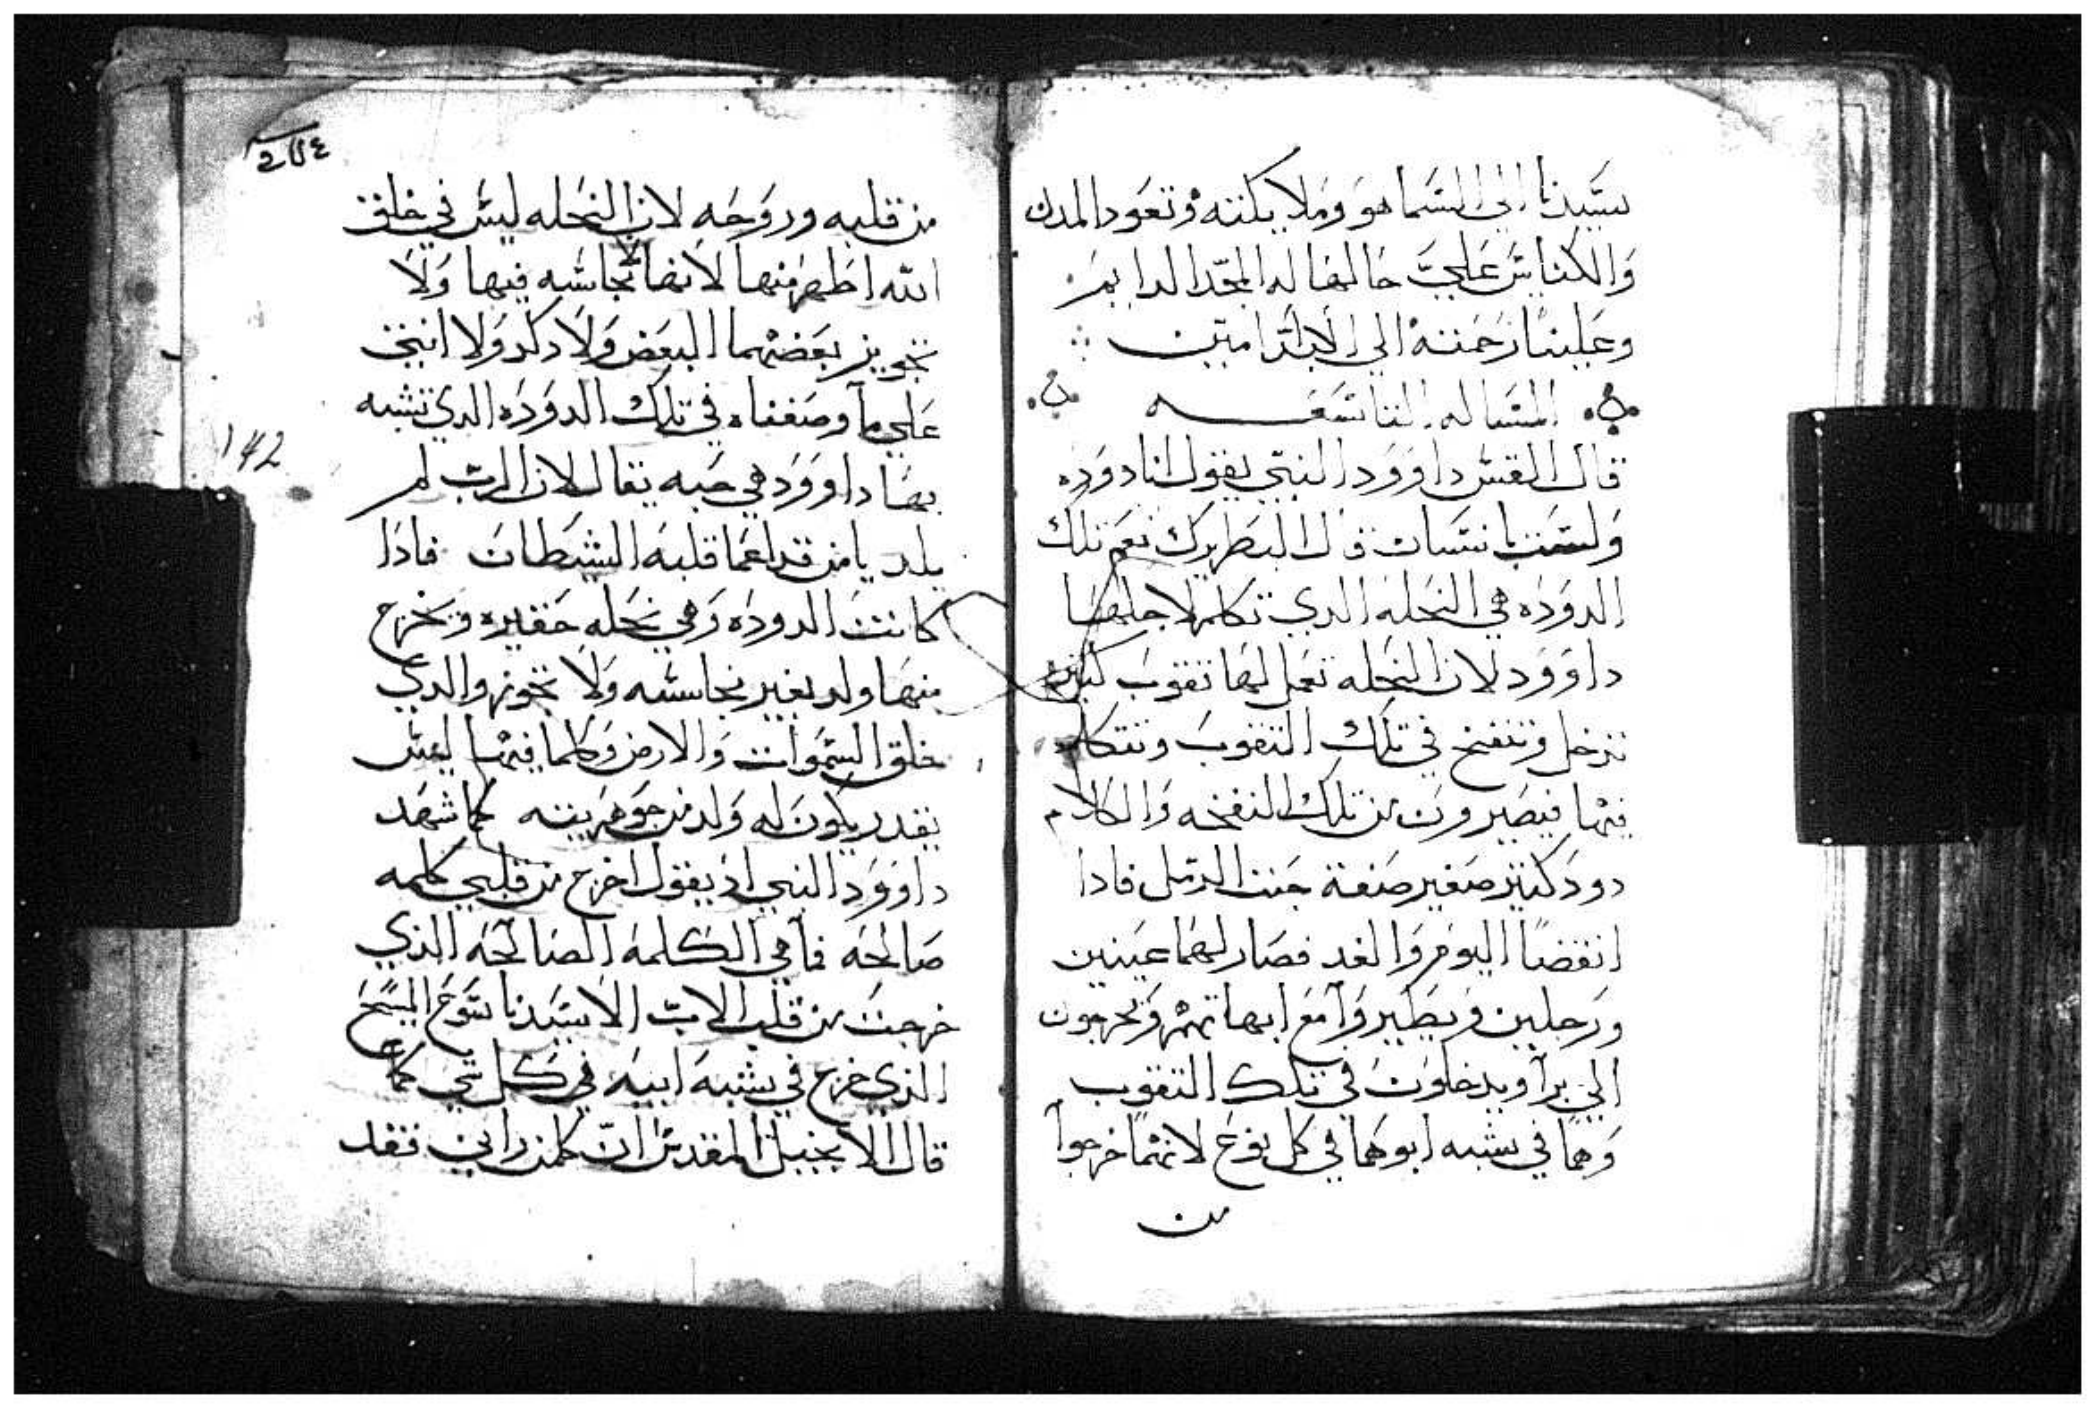 سيدنا الي السما هو وملايكته وتعود المدن
والكنايس علي حالها له المجد الدايم
وعلينا رحمته الي الابد امين
المساله التاسعه
قال القس داوود النبي يقول انا دوده
ولست بانسان قال البطريرك نعم تلك
الدوده هي النحله الدي تكلم لاجلها
داوود لان النحله تعمل لها تقوب كتير
تدخل وتنفخ في تلك التقوب وتتكلم
فيها فيصيرون من تلك النفخه والكلام
دود كتير صغير صفة حبت الرمل فادا
انقضا اليوم والغد فصار لهما عينين
ورجلين ويطيروا مع ابهاتهم ويخرجون
الي برا ويدخلون في تلك التقوب
وهما في شبه ابوهما في كل نوع لانهما خرجوا
من
من قلبه وروحه لان النحله ليس في خلق
الله اطهر منها لانها لا نجاسه فيها ولا
تجويز بعضهما البعض ولا دكر ولا انتي
علي ما وصفناه في تلك الدوده الدي تشبه
بها داوود هي حبه يقال لان الرب لم
يلد يا من قد اعما قلبه الشيطان فادا
كانت الدوده وهي نحله حقيره وتخرج
منها ولد بغير نجاسه ولا تجوز والدي
خلق السموات والارض وكلما فيها ليس
يقدر يكون له ولد من جوهريته كما شهد
داوود النبي اد يقول اخرج من قلبي كلمه
صالحه فما هي الكلمه الصالحه الذي
خرجت من قلب الاب الا سيدنا يسوع المسيح
الذي خرج في شبه ابيه في كل شي كما
قال الانجيل المقدس ان كلمن راني فقد
142